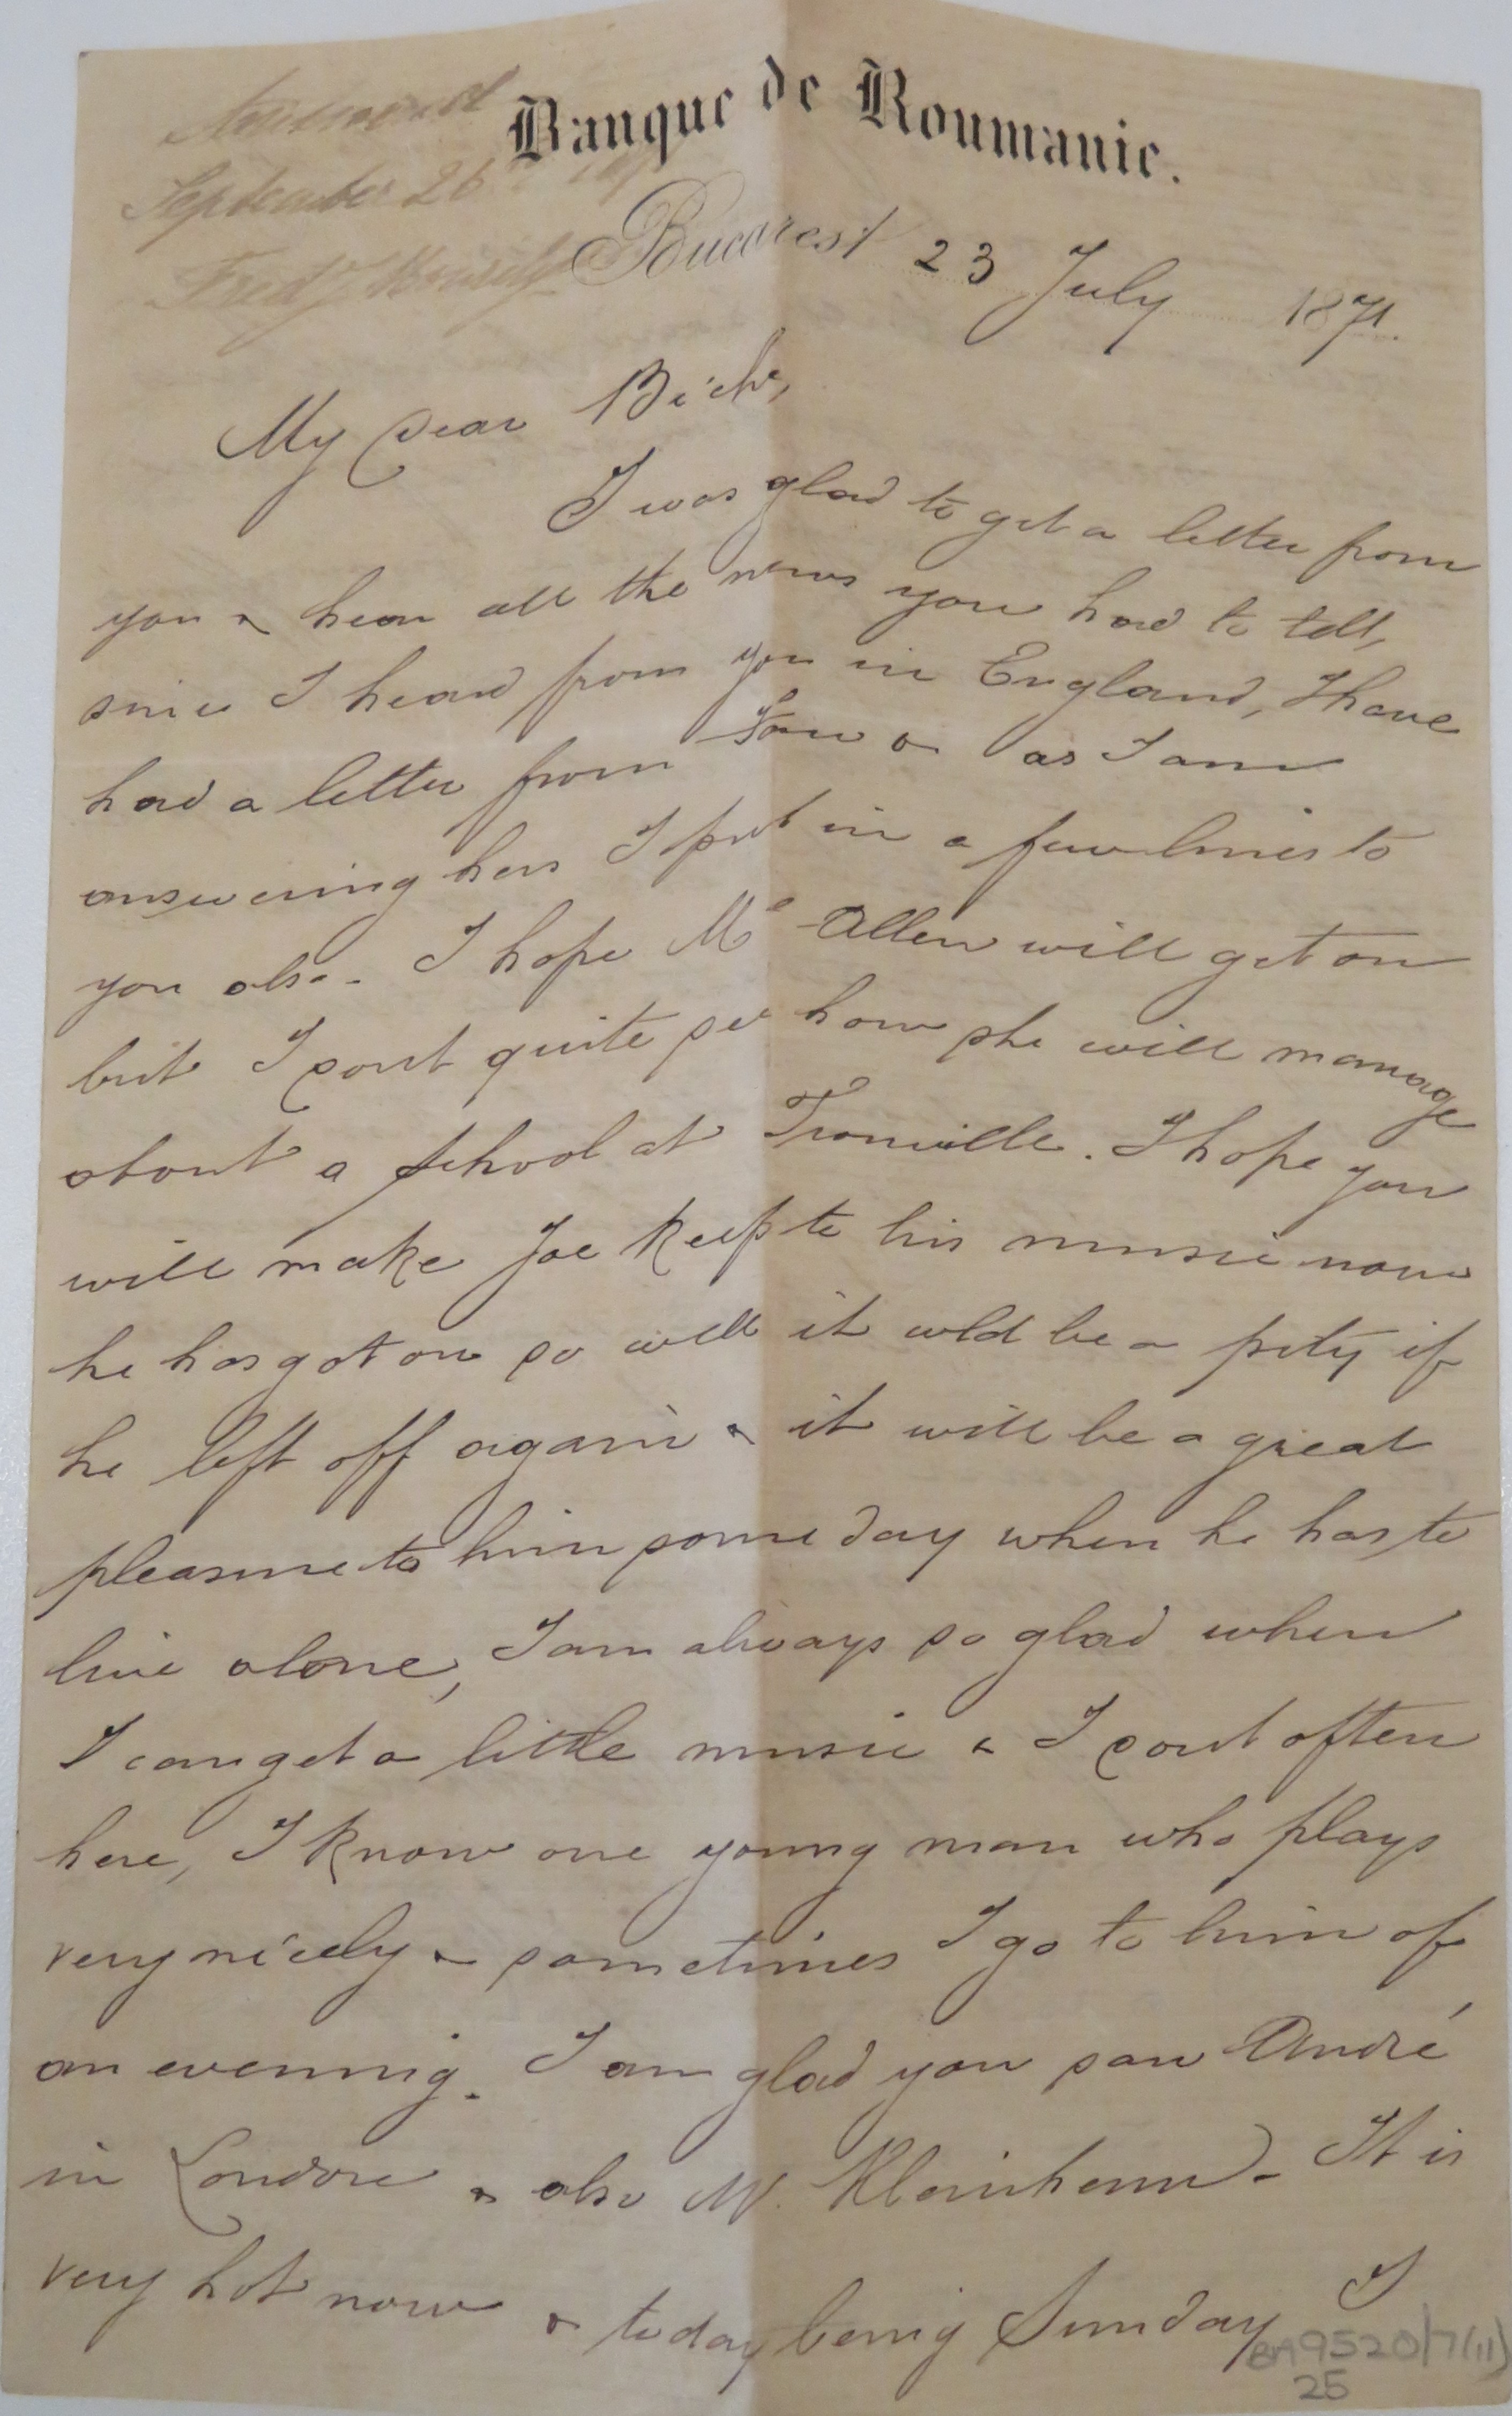 September 26
Banque de Roumanie.
Bucarest 23 July 1871.
My dear
I was glad to get a letter from
you & hear all the news you had to tell,
since I heard from you in England, I have
had a letter from & as I am
answering hers I put in a few lines to
you also. I hope Me Allen will get on
but I dont quite see how she will manage
about a school at Trouville. I hope you
will make Joe keep to his music now
he has got on so well it wld be a pity if
he left off again & it will be a great
pleasure to him some day when he has to
live alone, I am always so glad when
I can get a little music & I dont often
here, I know one young man who plays
very nicely & sometimes I go to him of
an evening. I am glad you saw André
in London & also M.
It is
very hot now & today being Sunday I
BA9520/7(11)
25